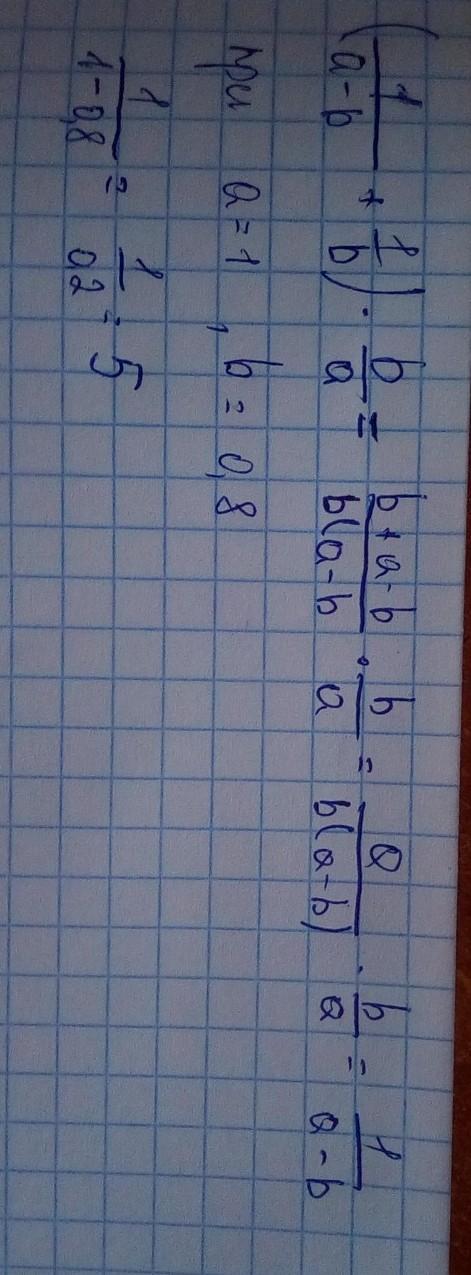 (1/(a-b) + 1/b) · b/a = (b+a-b)/(b(a-b) · b/a = a/(b(a-b)) · b/a = 1/(a-b)
при a=1, b=0,8
1/(1-0,8) = 1/0,2 = 5